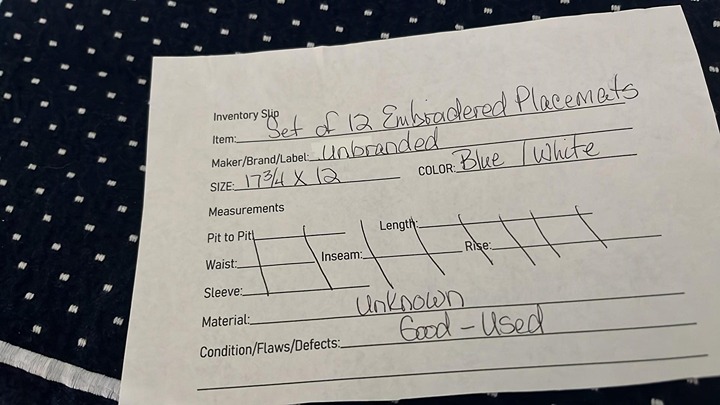 Inventory Slip
Item: Set of 12 Embroidered Placemats
Maker/Brand/Label: Unbranded
SIZE: 17 3/4 X 12 COLOR: Blue / White
Measurements
Pit to Pit Length:
Waist: Inseam: Rise:
Sleeve:
Material: Unknown
Condition/Flaws/Defects: Good - Used